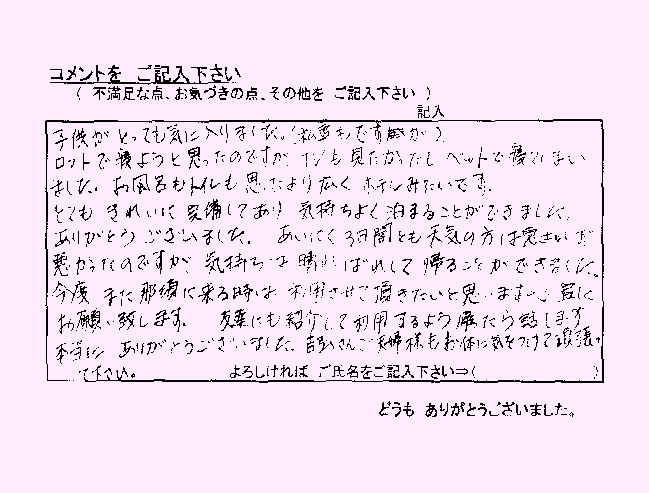 コメントを ご記入下さい
( 不満足な点、お気づきの点、その他を ご記入下さい )
記入
子供が とっても気に入りました。(私達もですが)
ロットで寝ようと思ったのですが、TVも見たかったし ベットで寝てしまい
ました。お風呂もトイレも思ったより広く ホテルみたいです。
とても きれいに完備してあり 気持ちよく泊まることができました。
ありがとうございました。 あいにく3日間とも天気の方は
悪かったのですが 気持ちは晴ればれして帰ることができました。
今度 また那須に来る時は 利用させて頂きたいと思います
お願い致します。 友達にも紹介して利用するよう 話します
本当に ありがとうございました。 さんご夫婦様もお体に気をつけて頑張っ
て下さい。 よろしければ ご氏名をご記入下さい⇒( )
どうも ありがとうございました。